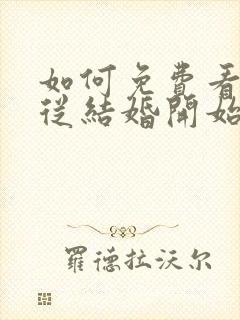 如何免費看
從結婚開始
羅德拉沃尔